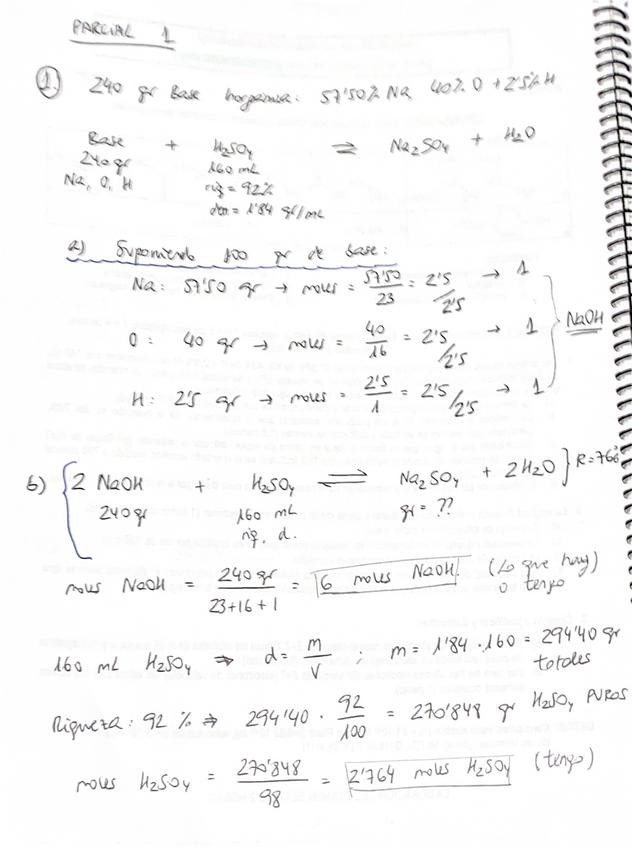 PARCIAL 1
1. 240 gr Base inorgánica: 57'50% Na 40% O + 2'5% H
Base + H₂SO₄ ⇌ Na₂SO₄ + H₂O
240 gr 160 mL
Na, O, H riq = 92%
den = 1'84 gr/mL
a) Suponiendo 100 gr de base:
Na: 57'50 gr → moles = 57'50/23 = 2'5/2'5 → 1
O: 40 gr → moles = 40/16 = 2'5/2'5 → 1 } NaOH
H: 2'5 gr → moles = 2'5/1 = 2'5/2'5 → 1
b) { 2 NaOH + H₂SO₄ ⇌ Na₂SO₄ + 2H₂O } R=76%
240 gr 160 mL gr = ??
riq. d.
moles NaOH = 240 gr / 23+16+1 = 6 moles NaOH (Lo que hay)
o tengo
160 mL H₂SO₄ ⇒ d = m/V ; m = 1'84 · 160 = 294'40 gr
totales
Riqueza: 92 % ⇒ 294'40 · 92/100 = 270'848 gr H₂SO₄ PUROS
moles H₂SO₄ = 270'848/98 = 2'764 moles H₂SO₄ (tengo)